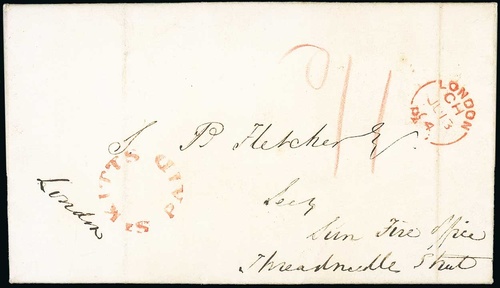 LONDON
CH
JU 13
64
PAID
J. B. Fletcher Esq
Secy
Sun Fire Office
Threadneedle Street
London
PAID
ST KITTS